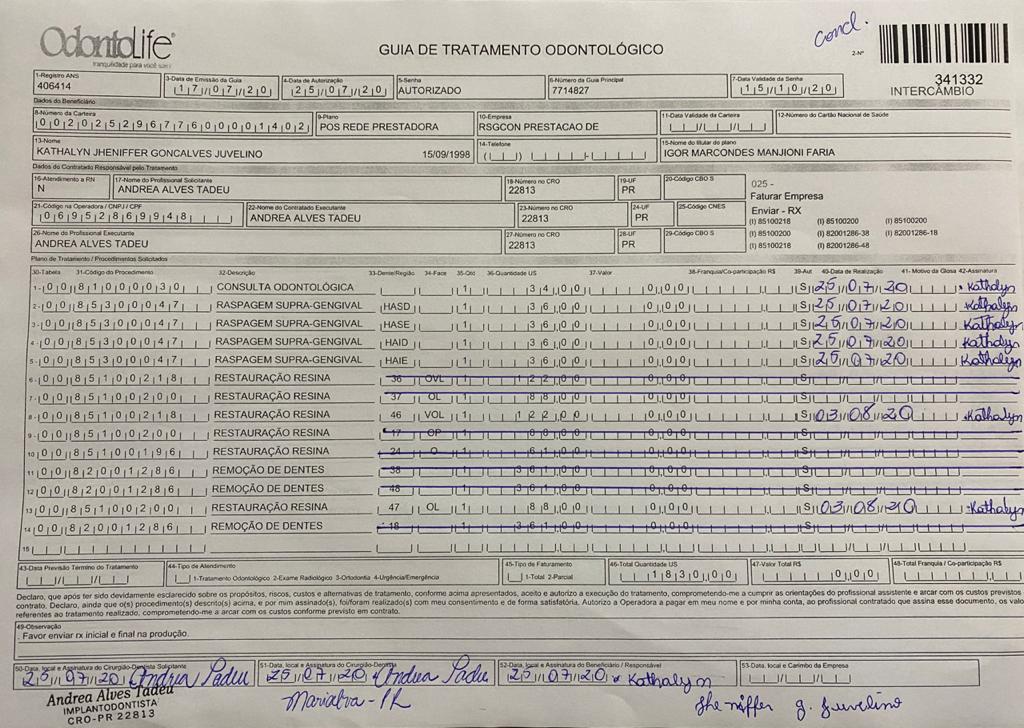 OdontoLife®
tranquilidade para você sorrir
GUIA DE TRATAMENTO ODONTOLÓGICO
Concl.
2-Nº
341332
INTERCÂMBIO
1-Registro ANS
406414
3-Data de Emissão da Guia
17/07/20
4-Data de Autorização
25/07/20
5-Senha
AUTORIZADO
6-Número da Guia Principal
7714827
7-Data Validade da Senha
15/10/20
Dados do Beneficiário
8-Número da Carteira
00202529677600001402
9-Plano
POS REDE PRESTADORA
10-Empresa
RSGCON PRESTACAO DE
11-Data Validade da Carteira
12-Número do Cartão Nacional de Saúde
13-Nome
KATHALYN JHENIFFER GONCALVES JUVELINO 15/09/1998
14-Telefone
15-Nome do titular do plano
IGOR MARCONDES MANJIONI FARIA
Dados do Contratado Responsável pelo Tratamento
16-Atendimento a RN
N
17-Nome do Profissional Solicitante
ANDREA ALVES TADEU
18-Número no CRO
22813
19-UF
PR
20-Código CBO S
025 -
Faturar Empresa
Enviar - RX
(I) 85100218 (I) 85100200 (I) 85100200
(I) 85100200 (I) 82001286-38 (I) 82001286-18
(I) 85100218 (I) 82001286-48
21-Código na Operadora / CNPJ / CPF
06952869948
22-Nome do Contratado Executante
ANDREA ALVES TADEU
23-Número no CRO
22813
24-UF
PR
25-Código CNES
26-Nome do Profissional Executante
ANDREA ALVES TADEU
27-Número no CRO
22813
28-UF
PR
29-Código CBO S
Plano de Tratamento / Procedimentos Solicitados
30-Tabela 31-Código do Procedimento 32-Descrição 33-Dente/Região 34-Face 35-Qtd 36-Quantidade US 37-Valor 38-Franquia/Co-participação R$ 39-Aut 40-Data de Realização 41- Motivo da Glosa 42-Assinatura
1- 00 81000030 CONSULTA ODONTOLÓGICA 1 34,00 0,00 S 25/07/20 Kathalyn
2- 00 85300047 RASPAGEM SUPRA-GENGIVAL HASD 1 36,00 0,00 S 25/07/20 Kathalyn
3- 00 85300047 RASPAGEM SUPRA-GENGIVAL HASE 1 36,00 0,00 S 25/07/20 Kathalyn
4- 00 85300047 RASPAGEM SUPRA-GENGIVAL HAID 1 36,00 0,00 S 25/07/20 Kathalyn
5- 00 85300047 RASPAGEM SUPRA-GENGIVAL HAIE 1 36,00 0,00 S 25/07/20 Kathalyn
6- 00 85100218 RESTAURAÇÃO RESINA 36 OVL 1 122,00 0,00 S
7- 00 85100200 RESTAURAÇÃO RESINA 37 OL 1 88,00 0,00 S
8- 00 85100218 RESTAURAÇÃO RESINA 46 VOL 1 122,00 0,00 S 03/08/20 Kathalyn
9- 00 85100200 RESTAURAÇÃO RESINA 17 OP 1 88,00 0,00 S
10- 00 85100196 RESTAURAÇÃO RESINA 24 O 1 61,00 0,00 S
11- 00 82001286 REMOÇÃO DE DENTES 38 1 361,00 0,00 S
12- 00 82001286 REMOÇÃO DE DENTES 48 1 361,00 0,00 S
13- 00 85100200 RESTAURAÇÃO RESINA 47 OL 1 88,00 0,00 S 03/08/20 Kathalyn
14- 00 82001286 REMOÇÃO DE DENTES 18 1 361,00 0,00 S
15
43-Data Previsão Término do Tratamento
44-Tipo de Atendimento
1-Tratamento Odontológico 2-Exame Radiológico 3-Ortodontia 4-Urgência/Emergência
45-Tipo de Faturamento
1-Total 2-Parcial
46-Total Quantidade US
1830,00
47-Valor Total R$
0,00
48-Total Franquia / Co-participação R$
Declaro, que após ter sido devidamente esclarecido sobre os propósitos, riscos, custos e alternativas de tratamento, conforme acima apresentados, aceito e autorizo a execução do tratamento, comprometendo-me a cumprir as orientações do profissional assistente e arcar com os custos previstos
contrato. Declaro, ainda que o(s) procedimento(s) descrito(s) acima, e por mim assinado(s), foi/foram realizado(s) com meu consentimento e de forma satisfatória. Autorizo a Operadora a pagar em meu nome e por minha conta, ao profissional contratado que assina esse documento, os valo
referentes ao tratamento realizado, comprometendo-me a arcar com os custos conforme previsto em contrato.
49-Observação
Favor enviar rx inicial e final na produção.
50-Data, local e Assinatura do Cirurgião-Dentista Solicitante
25/07/20 Andrea Tadeu
51-Data, local e Assinatura do Cirurgião-Dentista
25/07/20 Andrea Tadeu
Marialva - PR
52-Data, local e Assinatura do Beneficiário / Responsável
25/07/20 Kathalyn
Jheniffer g. Juvelino
53-Data, local e Carimbo da Empresa
Andrea Alves Tadeu
IMPLANTODONTISTA
CRO-PR 22813